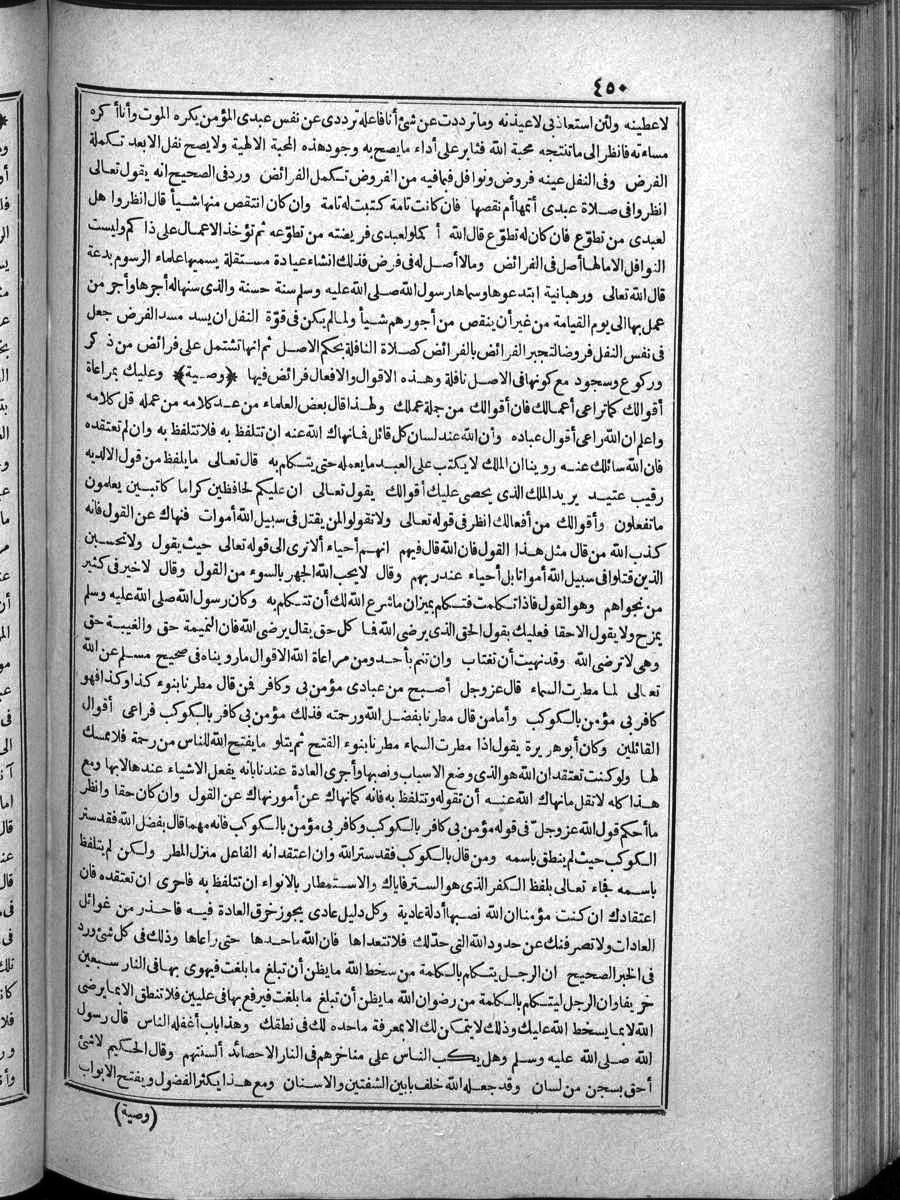 ٤٥٠
لاعطينه ولئن استعاذنى لاعيذنه وما ترددت عن شئ أنا فاعله ترددى عن نفس عبدى المؤمن يكره الموت وأنا أكره
مساءته فانظر الى ما تنتجه محبة الله فثابر على أداء ما يصح به وجود هذه المحبة الالهية ولا يصح نفل الا بعد تكملة
الفرض وفى النفل عينه فروض ونوافل فبما فيه من الفروض تكمل الفرائض ورد فى الصحيح انه يقول تعالى
انظروا فى صلاة عبدى أتمها أم نقصها فان كانت تامة كتبت له تامة وان كان انتقص منها شيأ قال انظروا هل
لعبدى من تطوّع فان كان له تطوّع قال الله أكملوا لعبدى فريضته من تطوّعه ثم تؤخذ الاعمال على ذاكم وليست
النوافل الا ما لها أصل فى الفرائض وما لا أصل له فى فرض فذلك انشاء عبادة مستقلة يسميها علماء الرسوم بدعة
قال الله تعالى ورهبانية ابتدعوها وسماها رسول الله صلى الله عليه وسلم سنة حسنة والذى سنها له أجرها وأجر من
عمل بها الى يوم القيامة من غير أن ينقص من أجورهم شيأ ولما لم يكن فى قوّة النفل ان يسد مسد الفرض جعل
فى نفس النفل فروضا لتجبر الفرائض بالفرائض كصلاة النافلة بحكم الاصل ثم انها تشتمل على فرائض من ذكر
وركوع وسجود مع كونها فى الاصل نافلة وهذه الاقوال والافعال فرائض فيها ﴿وصية﴾ وعليك بمراعاة
أقوالك كما تراعى أعمالك فان أقوالك من جملة عملك ولهذا قال بعض العلماء من عد كلامه من عمله قل كلامه
واعلم ان الله راعى أقوال عباده وأن الله عند لسان كل قائل فما نهاك الله عنه ان تتلفظ به فلا تتلفظ به وان لم تعتقده
فان الله سائلك عنه روينا ان الملك لا يكتب على العبد ما يعمله حتى يتكلم به قال تعالى ما يلفظ من قول الا لديه
رقيب عتيد يريد الملك الذى يحصى عليك أقوالك يقول تعالى ان عليكم لحافظين كراما كاتبين يعلمون
ما تفعلون وأقوالك من أفعالك انظر فى قوله تعالى ولا تقولوا لمن يقتل فى سبيل الله أموات فنهاك عن القول فانه
كذب الله من قال مثل هذا القول فان الله قال فيهم انهم أحياء ألا ترى الى قوله تعالى حيث يقول ولا تحسبن
الذين قتلوا فى سبيل الله أمواتا بل أحياء عند ربهم وقال لا يحب الله الجهر بالسوء من القول وقال لا خير فى كثير
من نجواهم وهو القول فاذا تكلمت فتكلم بميزان ما شرع الله لك أن تتكلم به وكان رسول الله صلى الله عليه وسلم
يمزح ولا يقول الا حقا فعليك بقول الحق الذى يرضى الله فما كل حق يقال يرضى الله فان النميمة حق والغيبة حق
وهى لا ترضى الله وقد نهيت أن تغتاب وان تنم بأحد ومن مراعاة الله الاقوال ما رويناه فى صحيح مسلم عن الله
تعالى لما مطرت السماء قال عز وجل أصبح من عبادى مؤمن بى وكافر فمن قال مطرنا بنوء كذا وكذا فهو
كافر بى مؤمن بالكوكب وأما من قال مطرنا بفضل الله ورحمته فذلك مؤمن بى كافر بالكوكب فراعى أقوال
القائلين وكان أبو هريرة يقول اذا مطرت السماء مطرنا بنوء الفتح ثم يتلو ما يفتح الله للناس من رحمة فلا ممسك
لها ولو كنت تعتقد ان الله هو الذى وضع الاسباب ونصبها وأجرى العادة عندنا بانه يفعل الاشياء عندها لا بها ومع
هذا كله لا تقل ما نهاك الله عنه أن تقوله وتتلفظ به فانه كما نهاك عن أمور نهاك عن القول وان كان حقا وانظر
ما أحكم قول الله عز وجلّ فى قوله مؤمن بى كافر بالكوكب وكافر بى مؤمن بالكوكب فانه مهما قال بفضل الله فقد ستر
الكوكب حيث لم ينطق باسمه ومن قال بالكوكب فقد ستر الله وان اعتقد انه الفاعل منزل المطر ولكن لم يتلفظ
باسمه فجاء تعالى بلفظ الكفر الذى هو الستر فاياك والاستمطار بالانواء ان تتلفظ به فاحرى ان تعتقده فان
اعتقادك ان كنت مؤمنا ان الله نصبها أدلة عادية وكل دليل عادى يجوز خرق العادة فيه فاحذر من غوائل
العادات ولا تصرفنك عن حدود الله التى حدّ لك فلا تتعداها فان الله ما حدها حتى راعاها وذلك فى كل شئ ورد
فى الخبر الصحيح ان الرجل يتكلم بالكلمة من سخط الله ما يظن أن تبلغ ما بلغت فيهوى بها فى النار سبعين
خريفا وان الرجل ليتكلم بالكلمة من رضوان الله ما يظن أن تبلغ ما بلغت فيرفع بها فى عليين فلا تنطق الا بما يرضى
الله لا بما يسخط الله عليك وذلك لا يتمكن لك الا بمعرفة ما حده لك فى نطقك وهذا باب أغفله الناس قال رسول
الله صلى الله عليه وسلم وهل يكب الناس على مناخرهم فى النار الا حصائد ألسنتهم وقال الحكيم لا شئ
أحق بسجن من لسان وقد جعله الله خلف بابين الشفتين والاسنان ومع هذا يكثر الفضول ويفتح الابواب
(وصية)